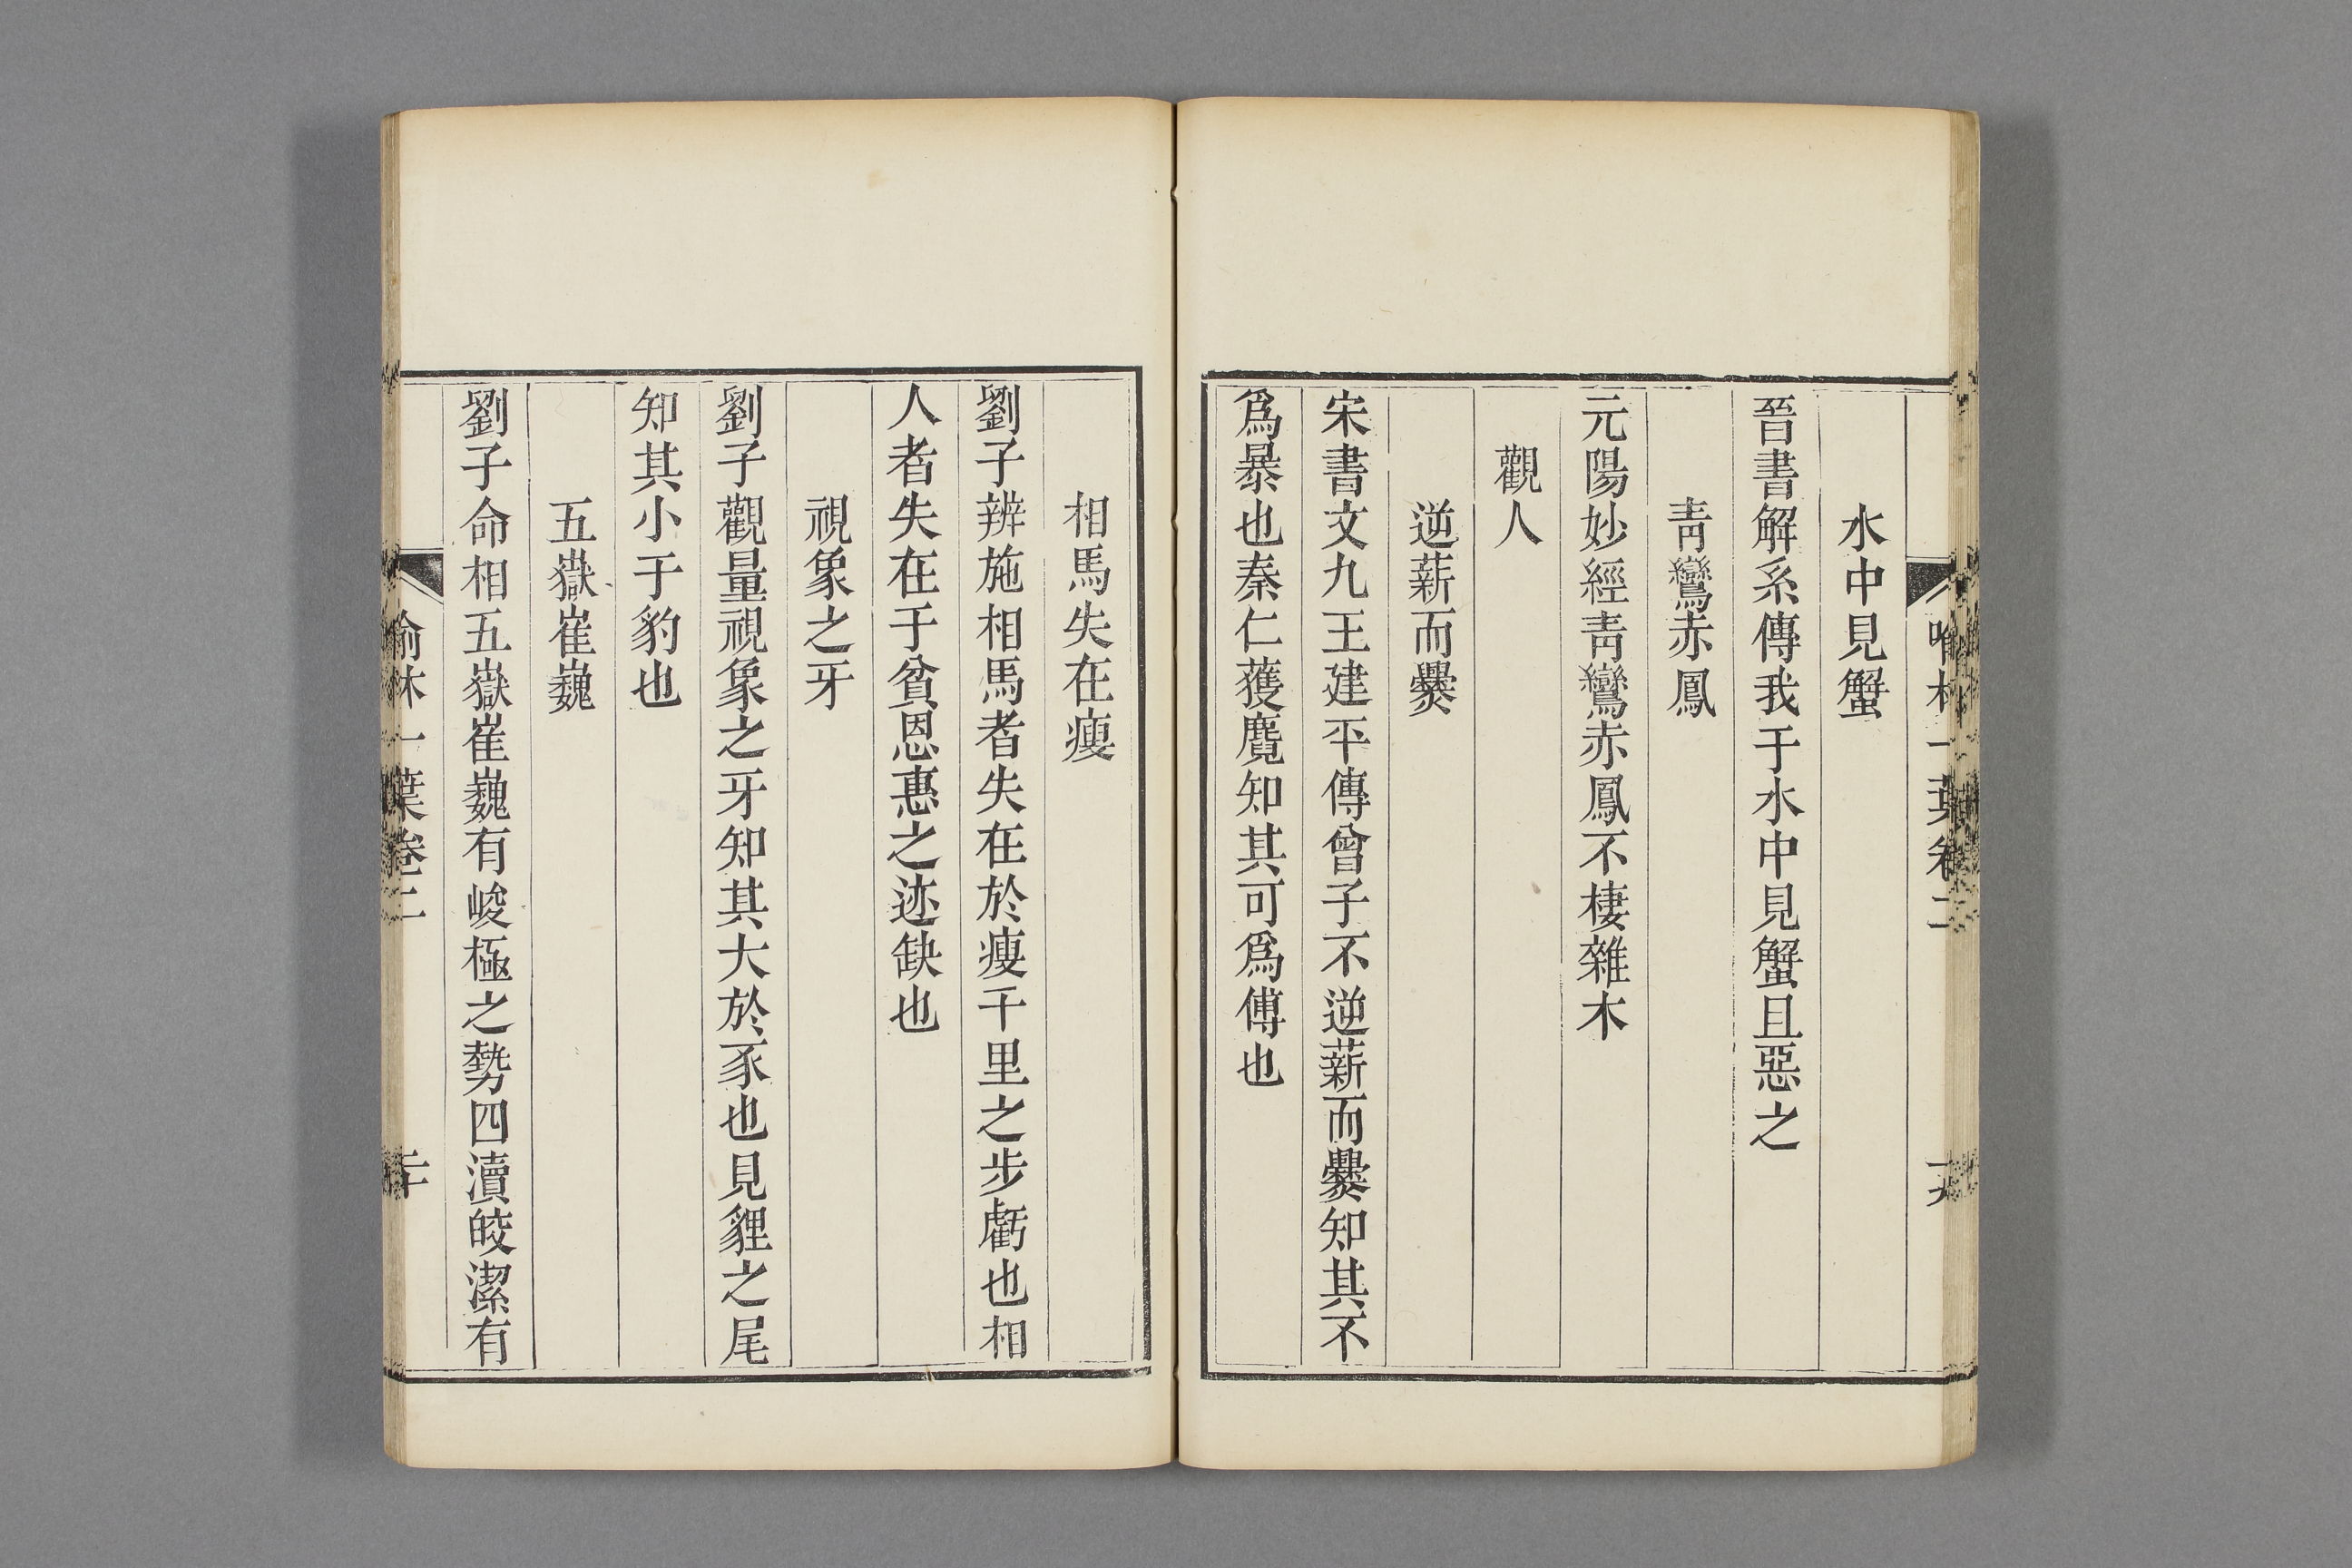 水中見蟹
晉書解系傳我于水中見蟹且惡之
靑鸞赤鳳
元陽妙經靑鸞赤鳳不棲雜木
觀人
逆薪而爨
宋書文九王建平傳曾子不逆薪而爨知其不
爲暴也秦仁獲麑知其可爲傅也
相馬失在瘦
劉子辨施相馬者失在於瘦千里之步虧也相
人者失在于貧恩惠之迹缺也
視象之牙
劉子觀量視象之牙知其大於豕也見貍之尾
知其小于豹也
五嶽崔巍
劉子命相五嶽崔巍有峻極之勢四瀆皎潔有
喻林一葉卷二